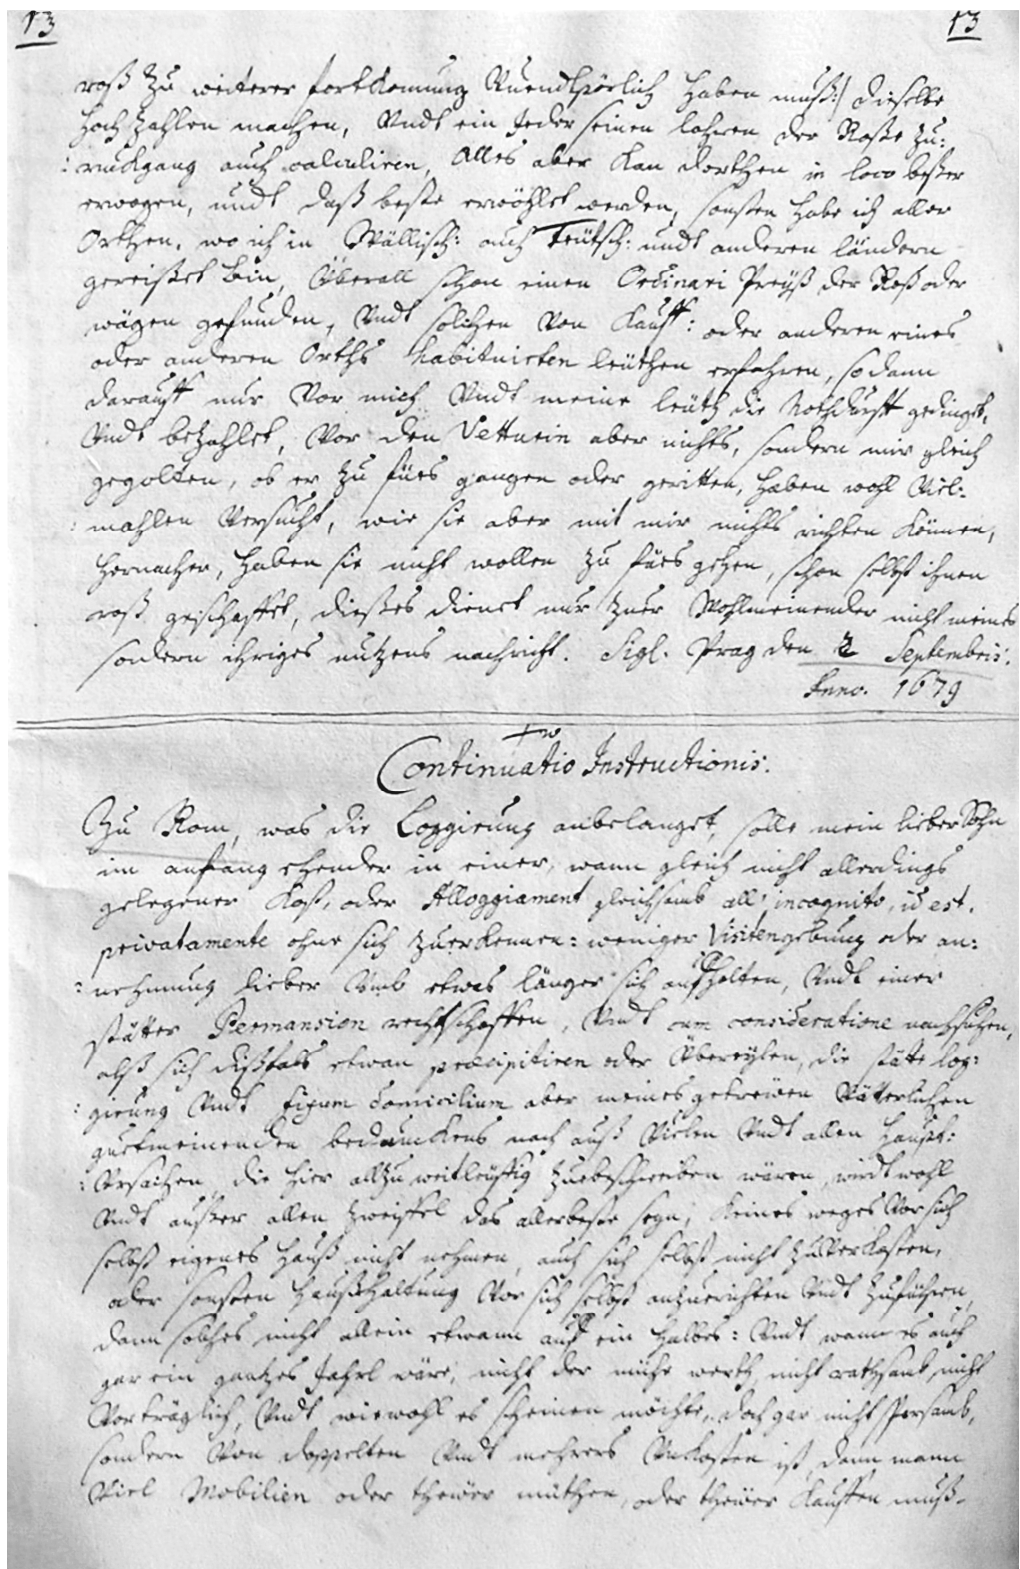 13 13
roß Zu weiterer fortkomung Unendtpörlich haben muß:/ dieselbe
hoch Zahlen machen, Undt ein Jeder seinen lohren der Roße Zu:
:ruckgang auch calculiren, Alles aber kan dorthen in loco beßer
erwogen, undt daß beste erwöhlet werden, sonsten habe ich aller
Orthen, wo ich in Wällisch: auch Teütsch: undt anderen ländern
gereißet bin, Überall schon einen Ordinari Preyß der Roß oder
wägen gefunden, Undt solchen Von Kauff: oder anderen eines
oder anderen Orths habituirten leüthen erfahren, so dann
darauff nur Vor mich Undt meine leüth die Nothdurfft gedinget,
Undt bezahlet, Vor den Vetturin aber nichts, sondern mir gleich
gegolten, ob er Zu fües gangen oder geritten, haben wohl Viel:
:mahlen Versucht, wie sie aber mit mir nichts richten können,
hernacher, haben sie nicht wollen Zu fües gehen, schon selbst ihnen
roß geschaffet, dießes dienet nur Zuer Wohlmeinender nicht meines
sondern ihriges nutzens nachricht. Sigl. Prag den 2 Septembris:
Anno. 1679
Continuatio Instructionis:
Zu Rom, was die Loggirung anbelanget, solle mein lieber Sohn
im anfang ehender in einer, wann gleich nicht allerdings
gelegener Kost, oder Alloggiament gleichsamb all' incognito, id est.
privatamente ohne sich Zuerkennen: weniger Visitengebung oder an:
:nehmung lieber Umb etwas länger sich aufhalten, Undt einer
stätter Permansion rechtschaffen, Undt cum consideratione nachsehen,
alß sich dißfals etwan præcipitiren oder Übereylen, die stäte log:
:girung Undt fixum domicilium aber meines getreüen Vätterlichen
guetmeinenden bedunckens nach auß Vielen Undt allen haupt:
:Ursachen, die hier allzu weitleüffig Zuebeschreiben wären, wirdt wohl
Undt außer allen Zweiffel das allerbeste seyn, keines weges Vor sich
selbst eigenes hauß nicht nehmen, auch sich selbst nicht Zuverkosten,
oder sonsten haußhaltung Vor sich selbst anzurichten Undt Zuführen,
dann solches nicht allein etwann auff ein halbes: Undt wann es auch
gar ein gantzes Jahrl wäre, nicht der mühe werth, nicht rathsamb, nicht
Vorträglich, Undt wiewohl es scheinen möchte, doch gar nicht spersamb,
sondern Von doppelten Undt mehrers Unkosten ist, dann mann
Viel Mobilien oder theüer müthen, oder theüer Kauffen muß.